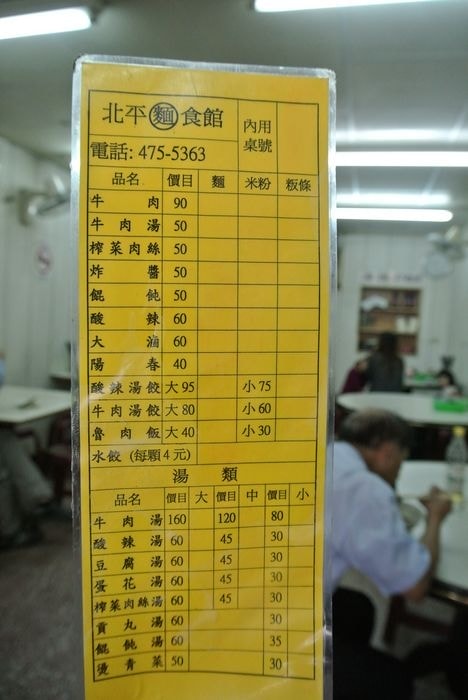 北平麵食館
內用桌號
電話: 475-5363
品名 價目 麵 米粉 粄條
牛肉 90
牛肉湯 50
榨菜肉絲 50
炸醬 50
餛飩 50
酸辣 60
大滷 60
陽春 40
酸辣湯餃 大95 小75
牛肉湯餃 大80 小60
魯肉飯 大40 小30
水餃 (每顆4元)
湯類
品名 價目 大 價目 中 價目 小
牛肉湯 160 120 80
酸辣湯 60 45 30
豆腐湯 60 45 30
蛋花湯 60 45 30
榨菜肉絲湯 60 45 30
貢丸湯 60 30
餛飩湯 60 35
燙青菜 50 30